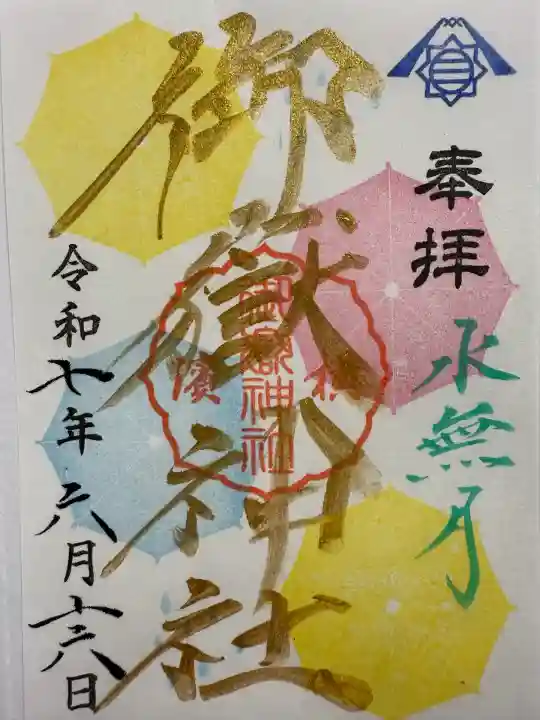 奉拝
水無月
御嶽神社
御嶽神社
令和七年 六月十六日